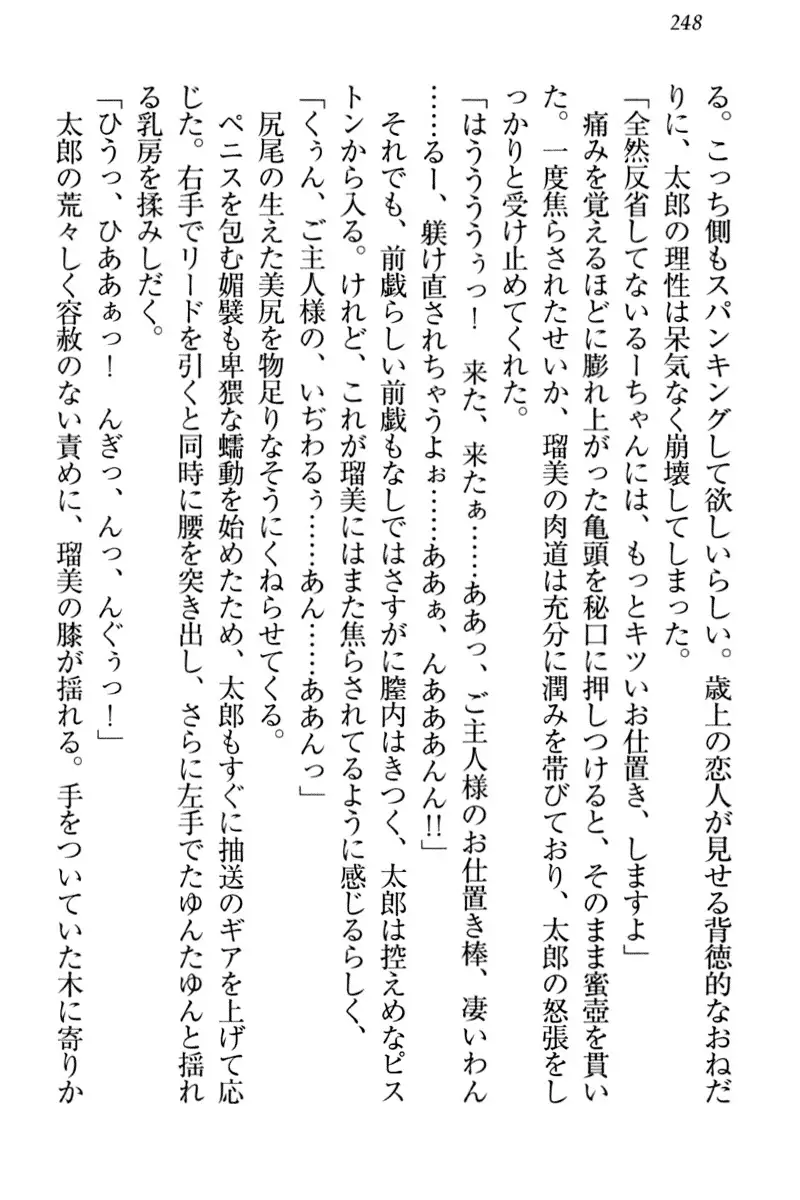 248
る。こっち側もスパンキングして欲しいらしい。歳上の恋人が見せる背徳的なおねだ
りに、太郎の理性は呆気なく崩壊してしまった。
「全然反省してないるーちゃんには、もっとキツいお仕置き、しますよ」
痛みを覚えるほどに膨れ上がった亀頭を秘口に押しつけると、そのまま蜜壺を貫い
た。一度焦らされたせいか、瑠美の肉道は充分に潤みを帯びており、太郎の怒張をし
っかりと受け止めてくれた。
「はうううぅっ！　来た、来たぁ……ああっ、ご主人様のお仕置き棒、凄いわん
……るー、躾け直されちゃうよぉ……ああぁ、んあああんん!!」
それでも、前戯らしい前戯もなしではさすがに膣内はきつく、太郎は控えめなピス
トンから入る。けれど、これが瑠美にはまた焦らされてるように感じるらしく、
「くぅん、ご主人様の、いぢわるぅ……あん……ああんっ」
尻尾の生えた美尻を物足りなそうにくねらせてくる。
ペニスを包む媚襞も卑猥な蠕動を始めたため、太郎もすぐに抽送のギアを上げて応
じた。右手でリードを引くと同時に腰を突き出し、さらに左手でたゆんたゆんと揺れ
る乳房を揉みしだく。
「ひうっ、ひああぁっ！　んぎっ、んっ、んぐぅっ！」
太郎の荒々しく容赦のない責めに、瑠美の膝が揺れる。手をついていた木に寄りか